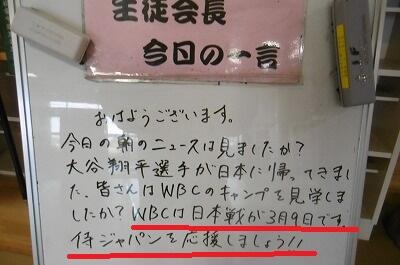 生徒会長
今日の一言
おはようございます。
今日の朝のニュースは見ましたか?
大谷翔平選手が日本に帰ってきまし
た。皆さんはWBCのキャンプを見学しま
したか?WBCは日本戦が3月9日です。
侍ジャパンを応援しましょう!!